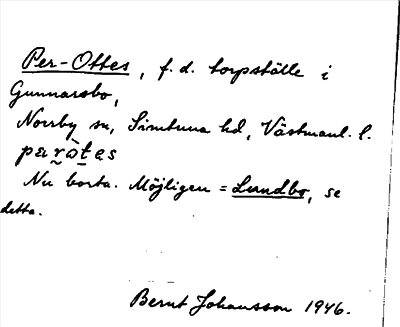 Per-Ottes, f.d. torpställe i
Gunnarsbo,
Norrby sn, Simtuna hd, Västmanl. l.
Nu borta. Möjligen = Lundbo, se
detta.
Bernt Johansson 1946.